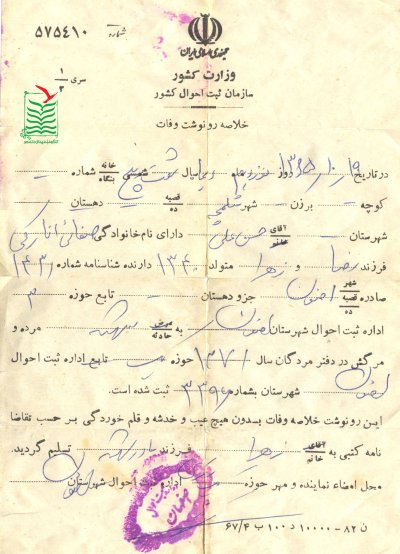 شماره ۵۷۵۴۱۰
جمهوری اسلامی ایران
وزارت کشور
سازمان ثبت احوال کشور
سری ۱/۳
خلاصه رونوشت وفات
در تاریخ ۱۳۶۵/۱۰/۱۹ روز نوزدهم دی سال شصت و پنج شمسی خانه/بنگاه شماره
کوچه – برزن – شهر شلمچه قصبه/ده دهستان
شهرستان – آقای/خانم حسن علی دارای نام خانوادگی صفائی انارکی
فرزند رضا و زهرا متولد ۱۳۴۰ دارنده شناسنامه شماره ۱۴۳۱
صادره شهر/قصبه/ده اصفهان جزو دهستان – تابع حوزه ۳
اداره ثبت احوال شهرستان اصفهان به مرض/حادثه مرده و
مرگش در دفتر مردگان سال ۱۳۷۱ حوزه تابع اداره ثبت احوال
اصفهان شهرستان بشماره ثبت شده است.
این رونوشت خلاصه وفات بدون هیچ عیب و خدشه و قلم خوردگی بر حسب تقاضا
نامه کتبی به آقای/خانم زهرا فرزند تسلیم گردید.
محل امضاء نماینده و مهر حوزه اداره ثبت احوال شهرستان اصفهان
اصفهان
ن ۸۲ – ۱۰۰۰۰ د ۱۰۰ ب ۶۷/۴